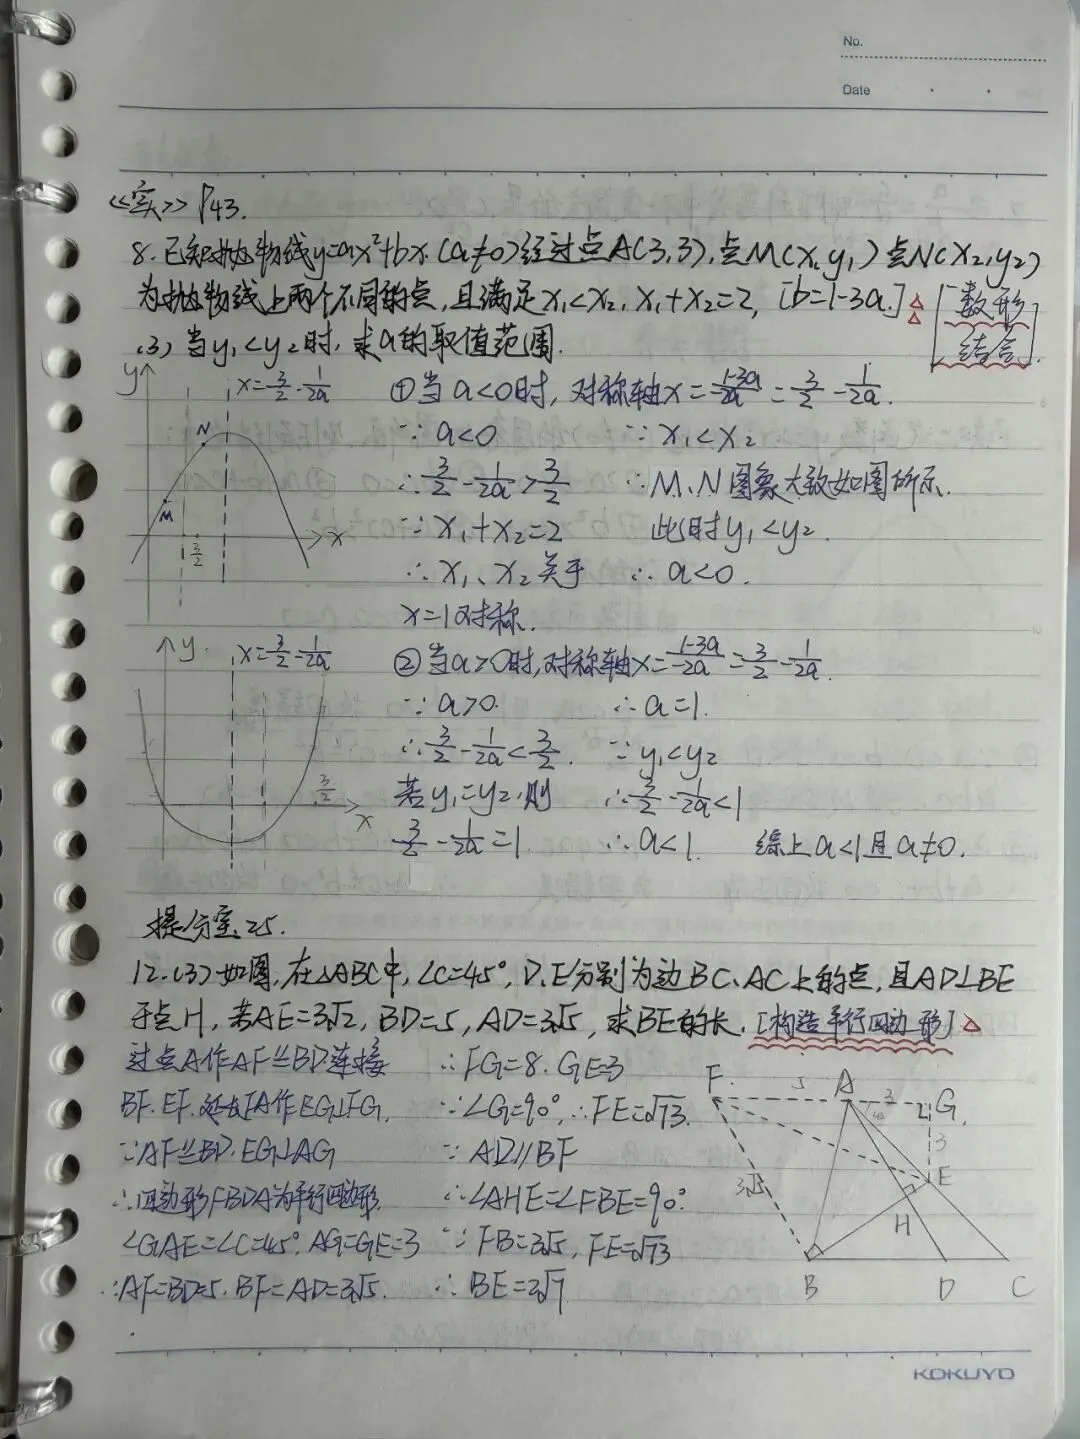 No.
Date
《实》P43.
8.已知抛物线y=ax²+bx.(a≠0)经过点A(3,3),点M(x,y₁)点N(x₂,y₂)
为抛物线上两个不同的点,且满足x₁<x₂,x₁+x₂=2,[b=1-3a.] [数形
(3)当y₁<y₂时,求a的取值范围. 结合].
y x=3/2-1/2a ①当a<0时,对称轴x=1-3a/-2a=3/2-1/2a.
N ∵a<0 ∵x₁<x₂
∴3/2-1/2a>3/2 ∴M、N图象大致如图所示.
M 3/2 x ∵x₁+x₂=2 此时y₁<y₂.
∴x₁、x₂关于 ∴a<0.
x=1对称.
y. x=3/2-1/2a ②当a>0时,对称轴x=1-3a/-2a=3/2-1/2a.
∵a>0. ∴a=1.
∴3/2-1/2a<3/2. ∵y₁<y₂
3/2 x 若y₁=y₂,则 ∴3/2-1/2a<1
3/2-1/2a=1. ∴a<1. 综上a<1且a≠0.
提分宝.25.
12.(3)如图,在△ABC中,∠C=45°,D、E分别为边BC、AC上的点,且AD⊥BE
于点H,若AE=3√2,BD=5,AD=3√5,求BE的长.[构造平行四边形]
过点A作AF⫽BD.连接 ∴FG=8.GE=3
BF.EF.延长FA作EG⊥FG. ∵∠G=90°,∴FE=√73.
∵AF⫽BD.EG⊥AG ∵AD//BF
∴四边形FBDA为平行四边形. ∴∠AHE=∠FBE=90°
∠GAE=∠C=45°.AG=GE=3 ∵FB=3√5,FE=√73
∴AF=BD=5.BF=AD=3√5. ∴BE=2√7
F. 5 A 3 G.
45° 3
3√5 E
H
B D C
KOKUYO